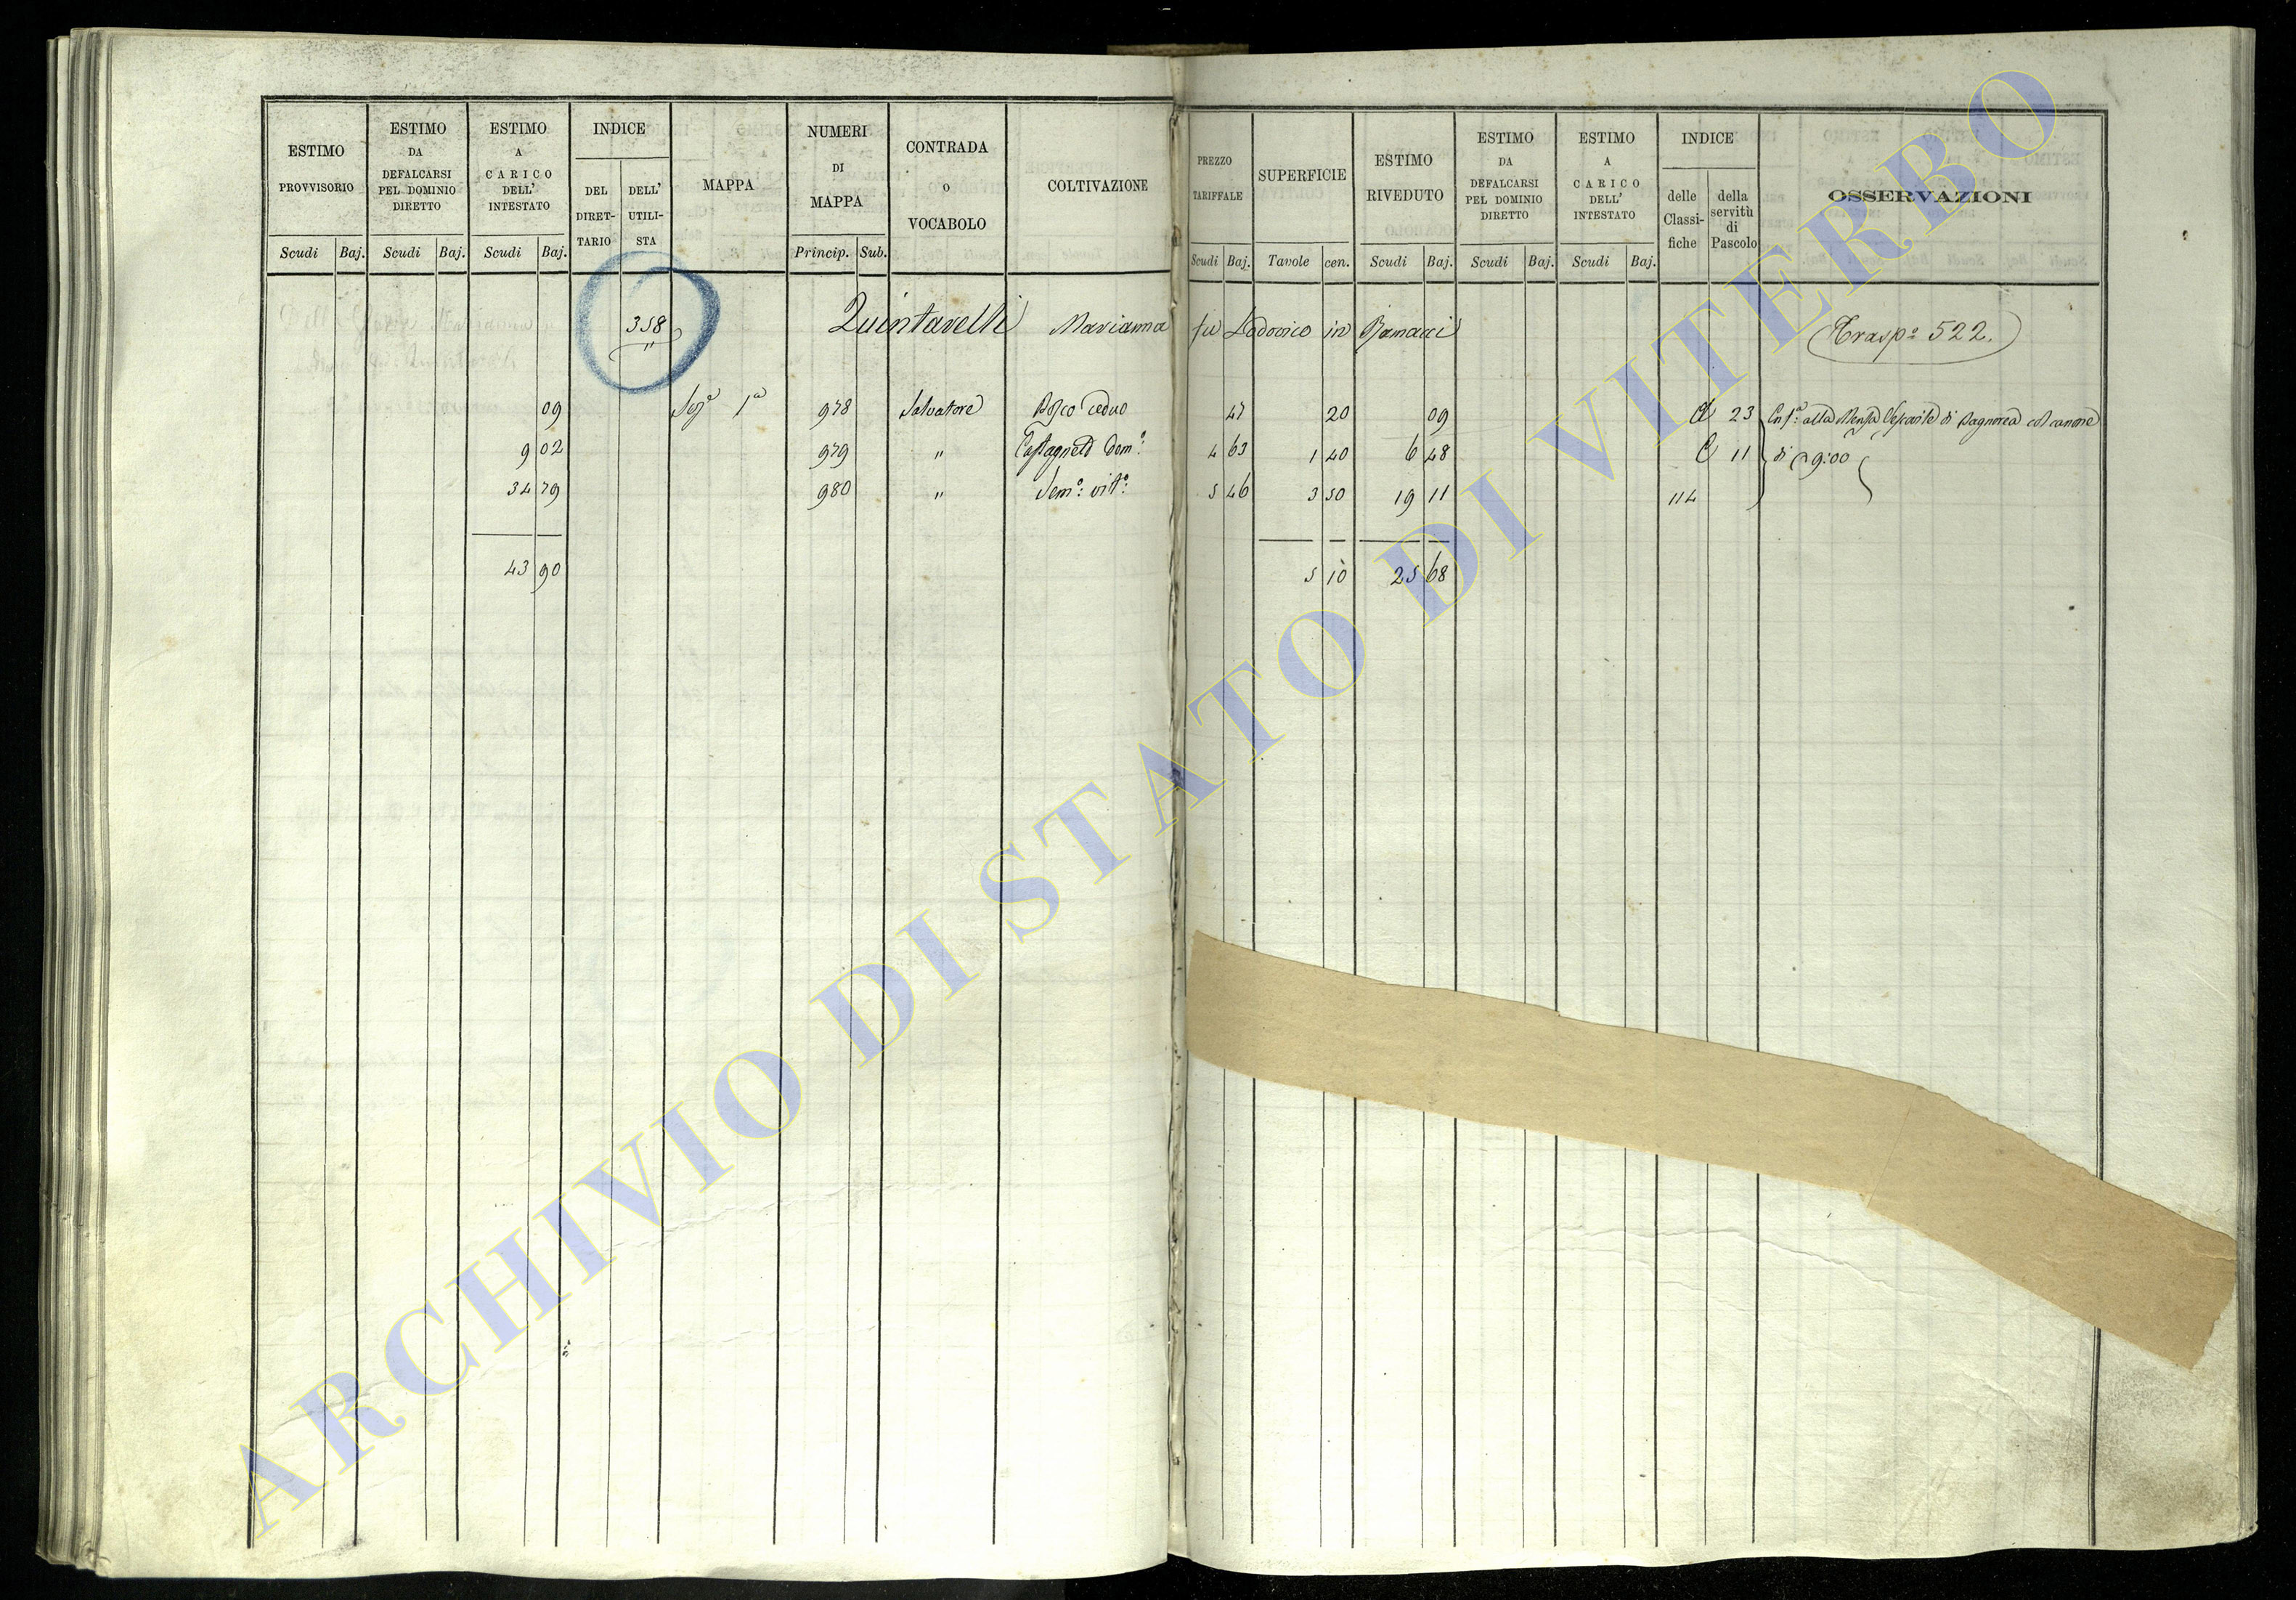 ESTIMO PROVVISORIO
Scudi Baj.
ESTIMO DA DEFALCARSI PEL DOMINIO DIRETTO
Scudi Baj.
ESTIMO A CARICO DELL' INTESTATO
Scudi Baj.
INDICE
DEL DIRETTARIO
DELL' UTILISTA
MAPPA
NUMERI DI MAPPA
Princip. Sub.
CONTRADA O VOCABOLO
COLTIVAZIONE
PREZZO TARIFFALE
Scudi Baj.
SUPERFICIE
Tavole cen.
ESTIMO RIVEDUTO
Scudi Baj.
ESTIMO DA DEFALCARSI PEL DOMINIO DIRETTO
Scudi Baj.
ESTIMO A CARICO DELL' INTESTATO
Scudi Baj.
INDICE
delle Classifiche
della servitù di Pascolo
OSSERVAZIONI
358 Quintarelli Marianna fu Lodovico in Traspo: 522.
"
09 Seze 1a 978 Salvatore Bosco ceduo 47 20 09 23 alla Mensa Vescovile di Bagnorea col canone
9 02 979 " Castagneto Dom: 4 63 1 40 6 48 C 11 di 9:00
34 79 980 " Semo: vito: 5 46 3 50 19 11 114
43 90 5 10 25 68
ARCHIVIO DI STATO DI VITERBO